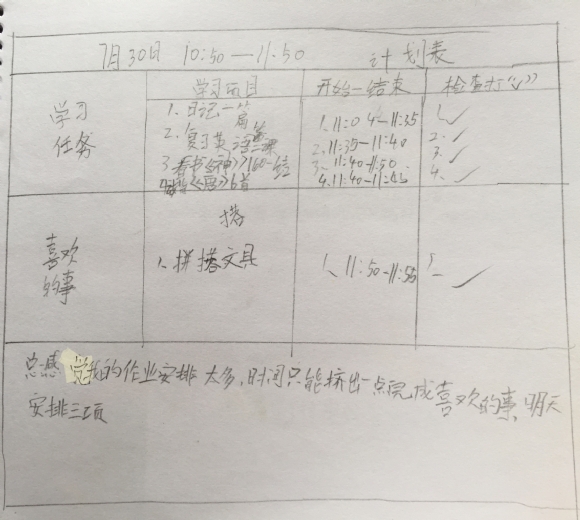 7月30日 10:50—11:50 计划表
学习项目 开始—结束 检查打"√"
学习
任务
1. 日记一篇 1. 11:04—11:35 1. √
2. 复习英语 2. 11:35—11:40 2. √
3. 看书 3. 11:40—11:50 3. √
6首 4. 11:40—11:45 4. √
喜欢
的事
搭
1. 拼搭文具 1. 11:50—11:55 1. √
总感觉我的作业安排太多,时间只能挤出一点完成喜欢的事,明天
安排三项